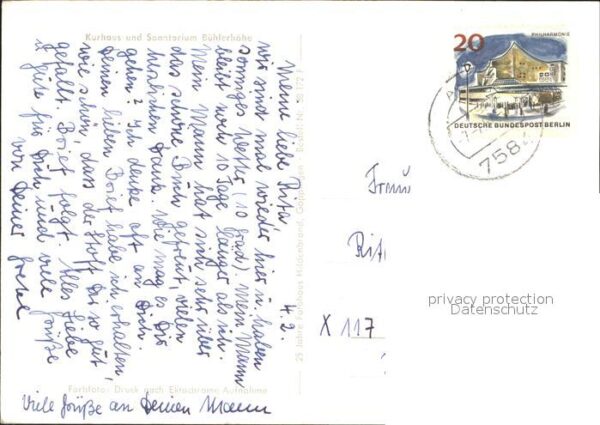 Kurhaus und Sanatorium Bühlerhöhe
4.2.
Meine liebe Rita
wir sind mal wieder hier u. haben
sonniges Wetter (10 Grad). Mein Mann
bleibt wohl 10 Tage länger als ich.
Mein Mann hat sich sehr über
das schöne Buch gefreut, vielen
herzlichen Dank. Wie mag es Dir
gehen? Ich denke oft an Dich.
Deinen lieben Brief habe ich erhalten
wie schön, dass der Stoff Dir so gut
gefällt. Brief folgt. Alles Liebe
u. Gute für Dich und viele Grüße
von Deiner
Gretel
Viele Grüße an Deinen Mann
Farbfoto: Druck nach Ektachrome Aufnahme
25 Jahre Fotohaus Hildenbrand, Göppingen
20
PHILHARMONIE
DEUTSCHE BUNDESPOST BERLIN
758
Frau
Rit
X 117
privacy protection
Datenschutz